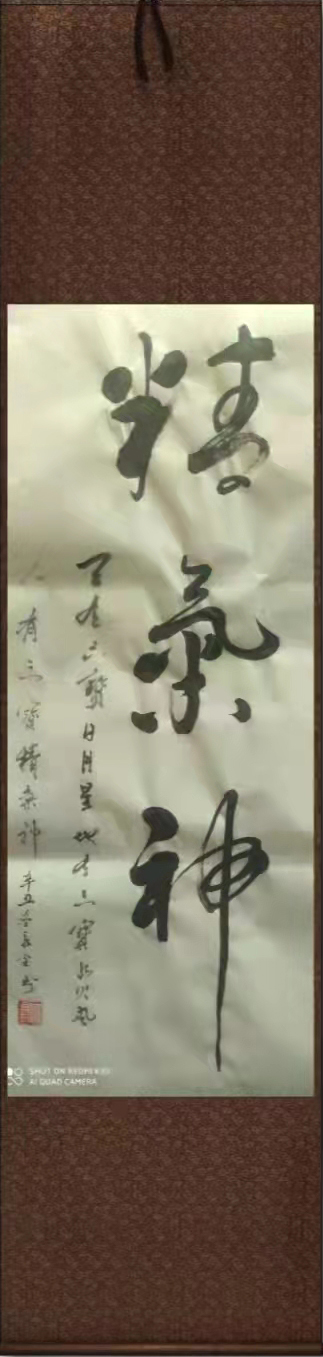 精氣神
天有三寶日月星地有三寶水火風
人有三寶精氣神
辛丑
书
SHOT ON REDMI
AI QUAD CAMERA